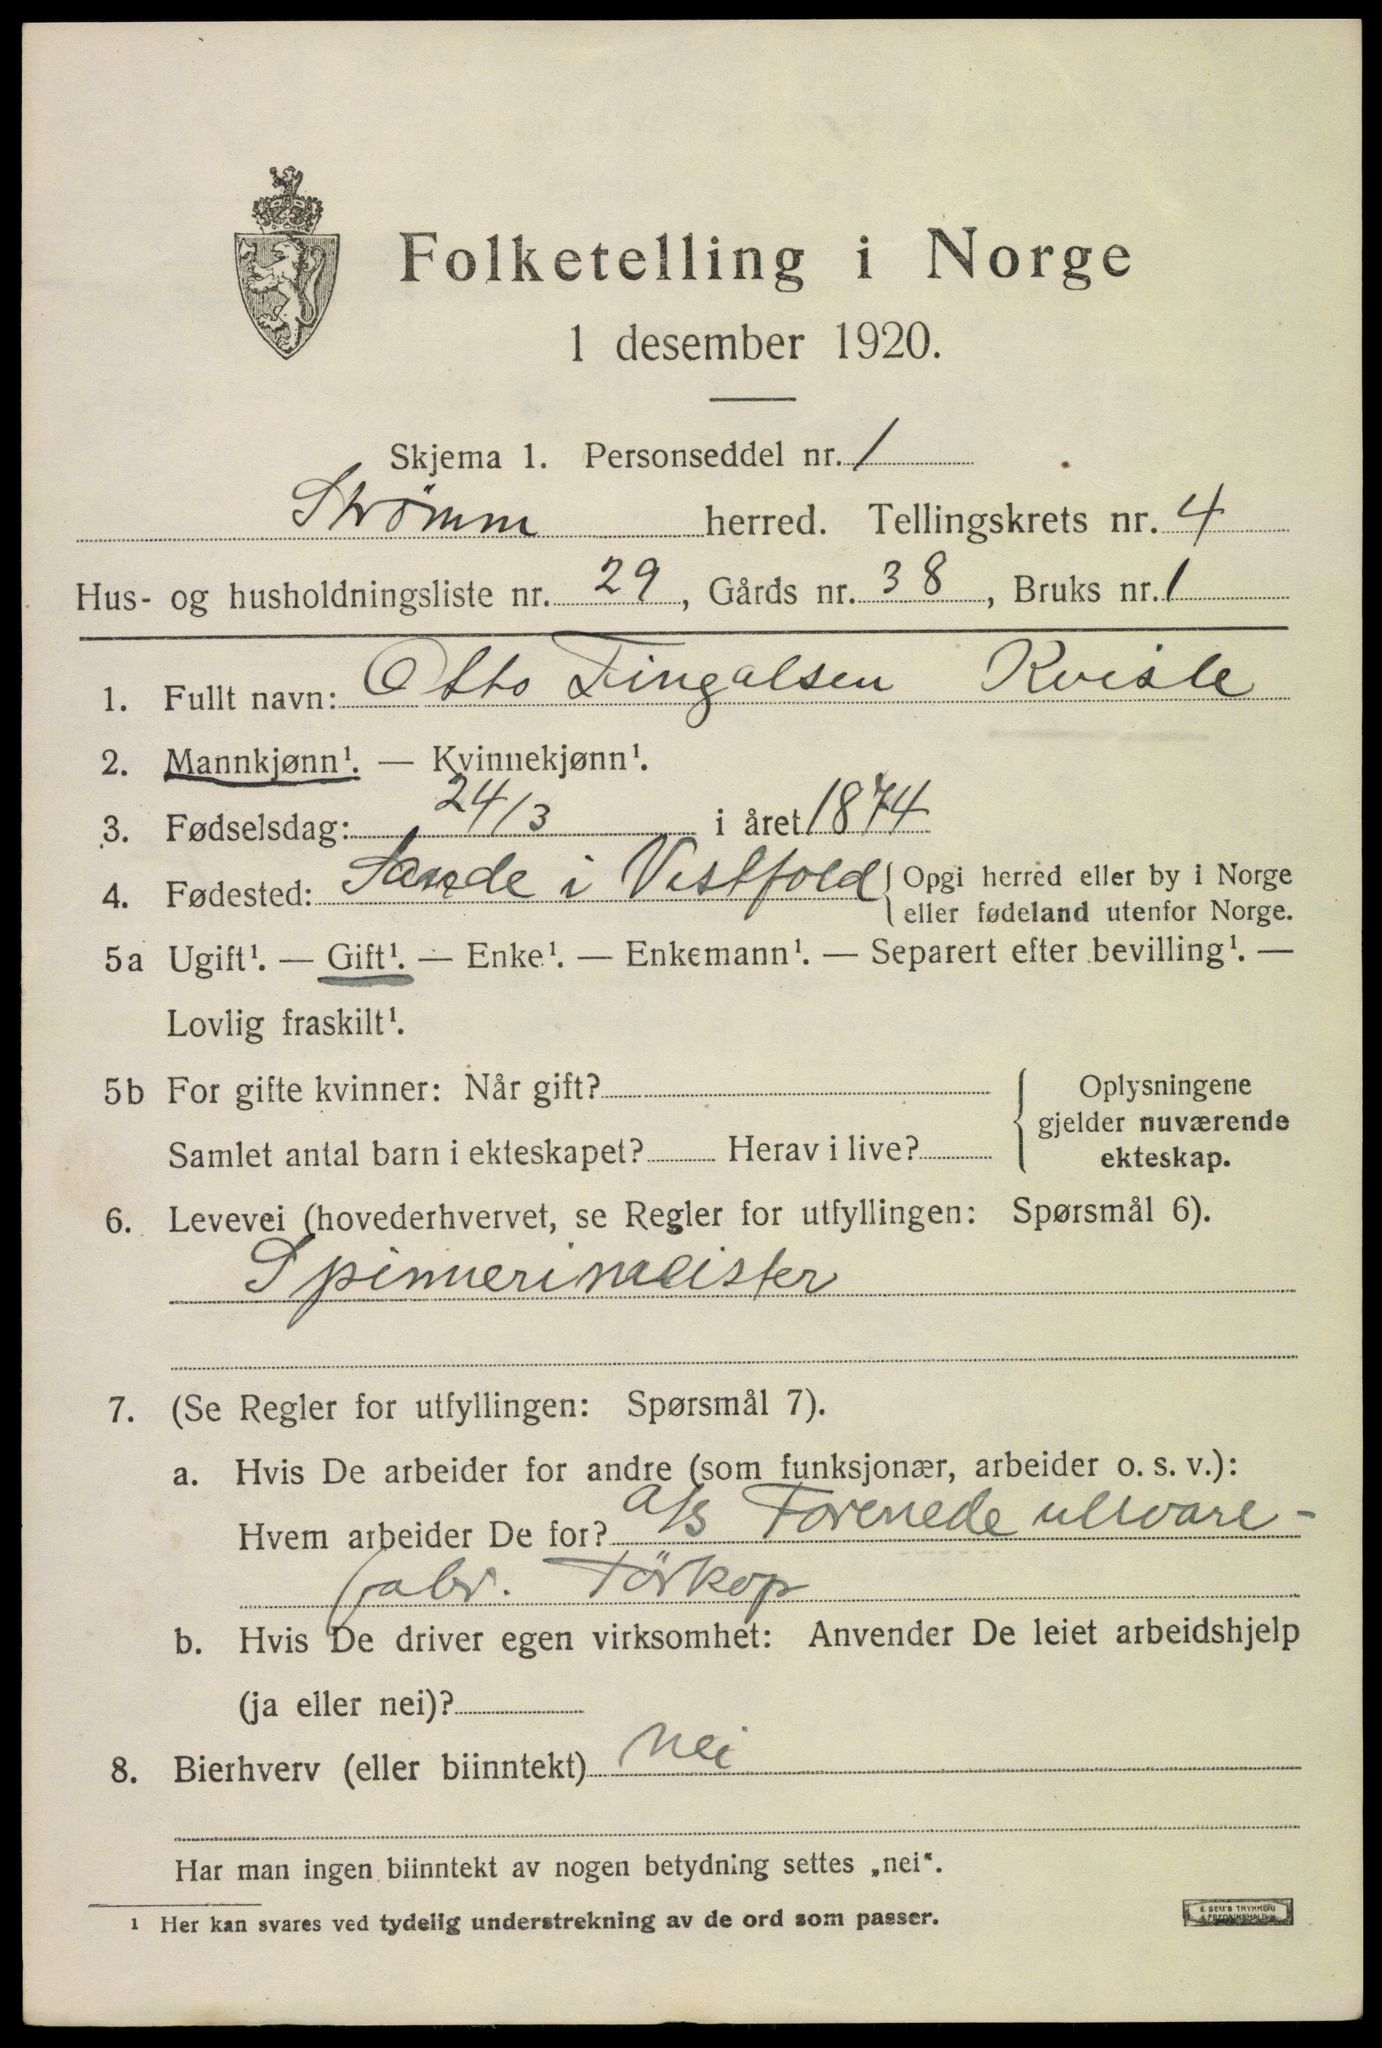 Folketelling i Norge
1 desember 1920.
Skjema 1. Personseddel nr. 1
Strømm herred. Tellingskrets nr. 4
Hus- og husholdningsliste nr. 29, Gårds nr. 38, Bruks nr. 1
1. Fullt navn: Otto Fingalsen Kvisle
2. Mannkjønn¹. — Kvinnekjønn¹.
3. Fødselsdag: 24/3 i året 1874
4. Fødested: Sande i Vestfold { Opgi herred eller by i Norge
eller fødeland utenfor Norge.
5a Ugift¹. — Gift¹. — Enke¹. — Enkemann¹. — Separert efter bevilling¹. —
Lovlig fraskilt¹.
5b For gifte kvinner: Når gift?
Samlet antal barn i ekteskapet? Herav i live?
Oplysningene
gjelder nuværende
ekteskap.
6. Levevei (hovederhvervet, se Regler for utfyllingen: Spørsmål 6).
Spinnerimeister
7. (Se Regler for utfyllingen: Spørsmål 7).
a. Hvis De arbeider for andre (som funksjonær, arbeider o. s. v.):
Hvem arbeider De for? a/s Forenede ullvare-
fabr. Törkop
b. Hvis De driver egen virksomhet: Anvender De leiet arbeidshjelp
(ja eller nei)?
8. Bierhverv (eller biinntekt) Nei
Har man ingen biinntekt av nogen betydning settes „nei“.
1 Her kan svares ved tydelig understrekning av de ord som passer.
E. SEM'S TRYKKERI
FREDRIKSHALD